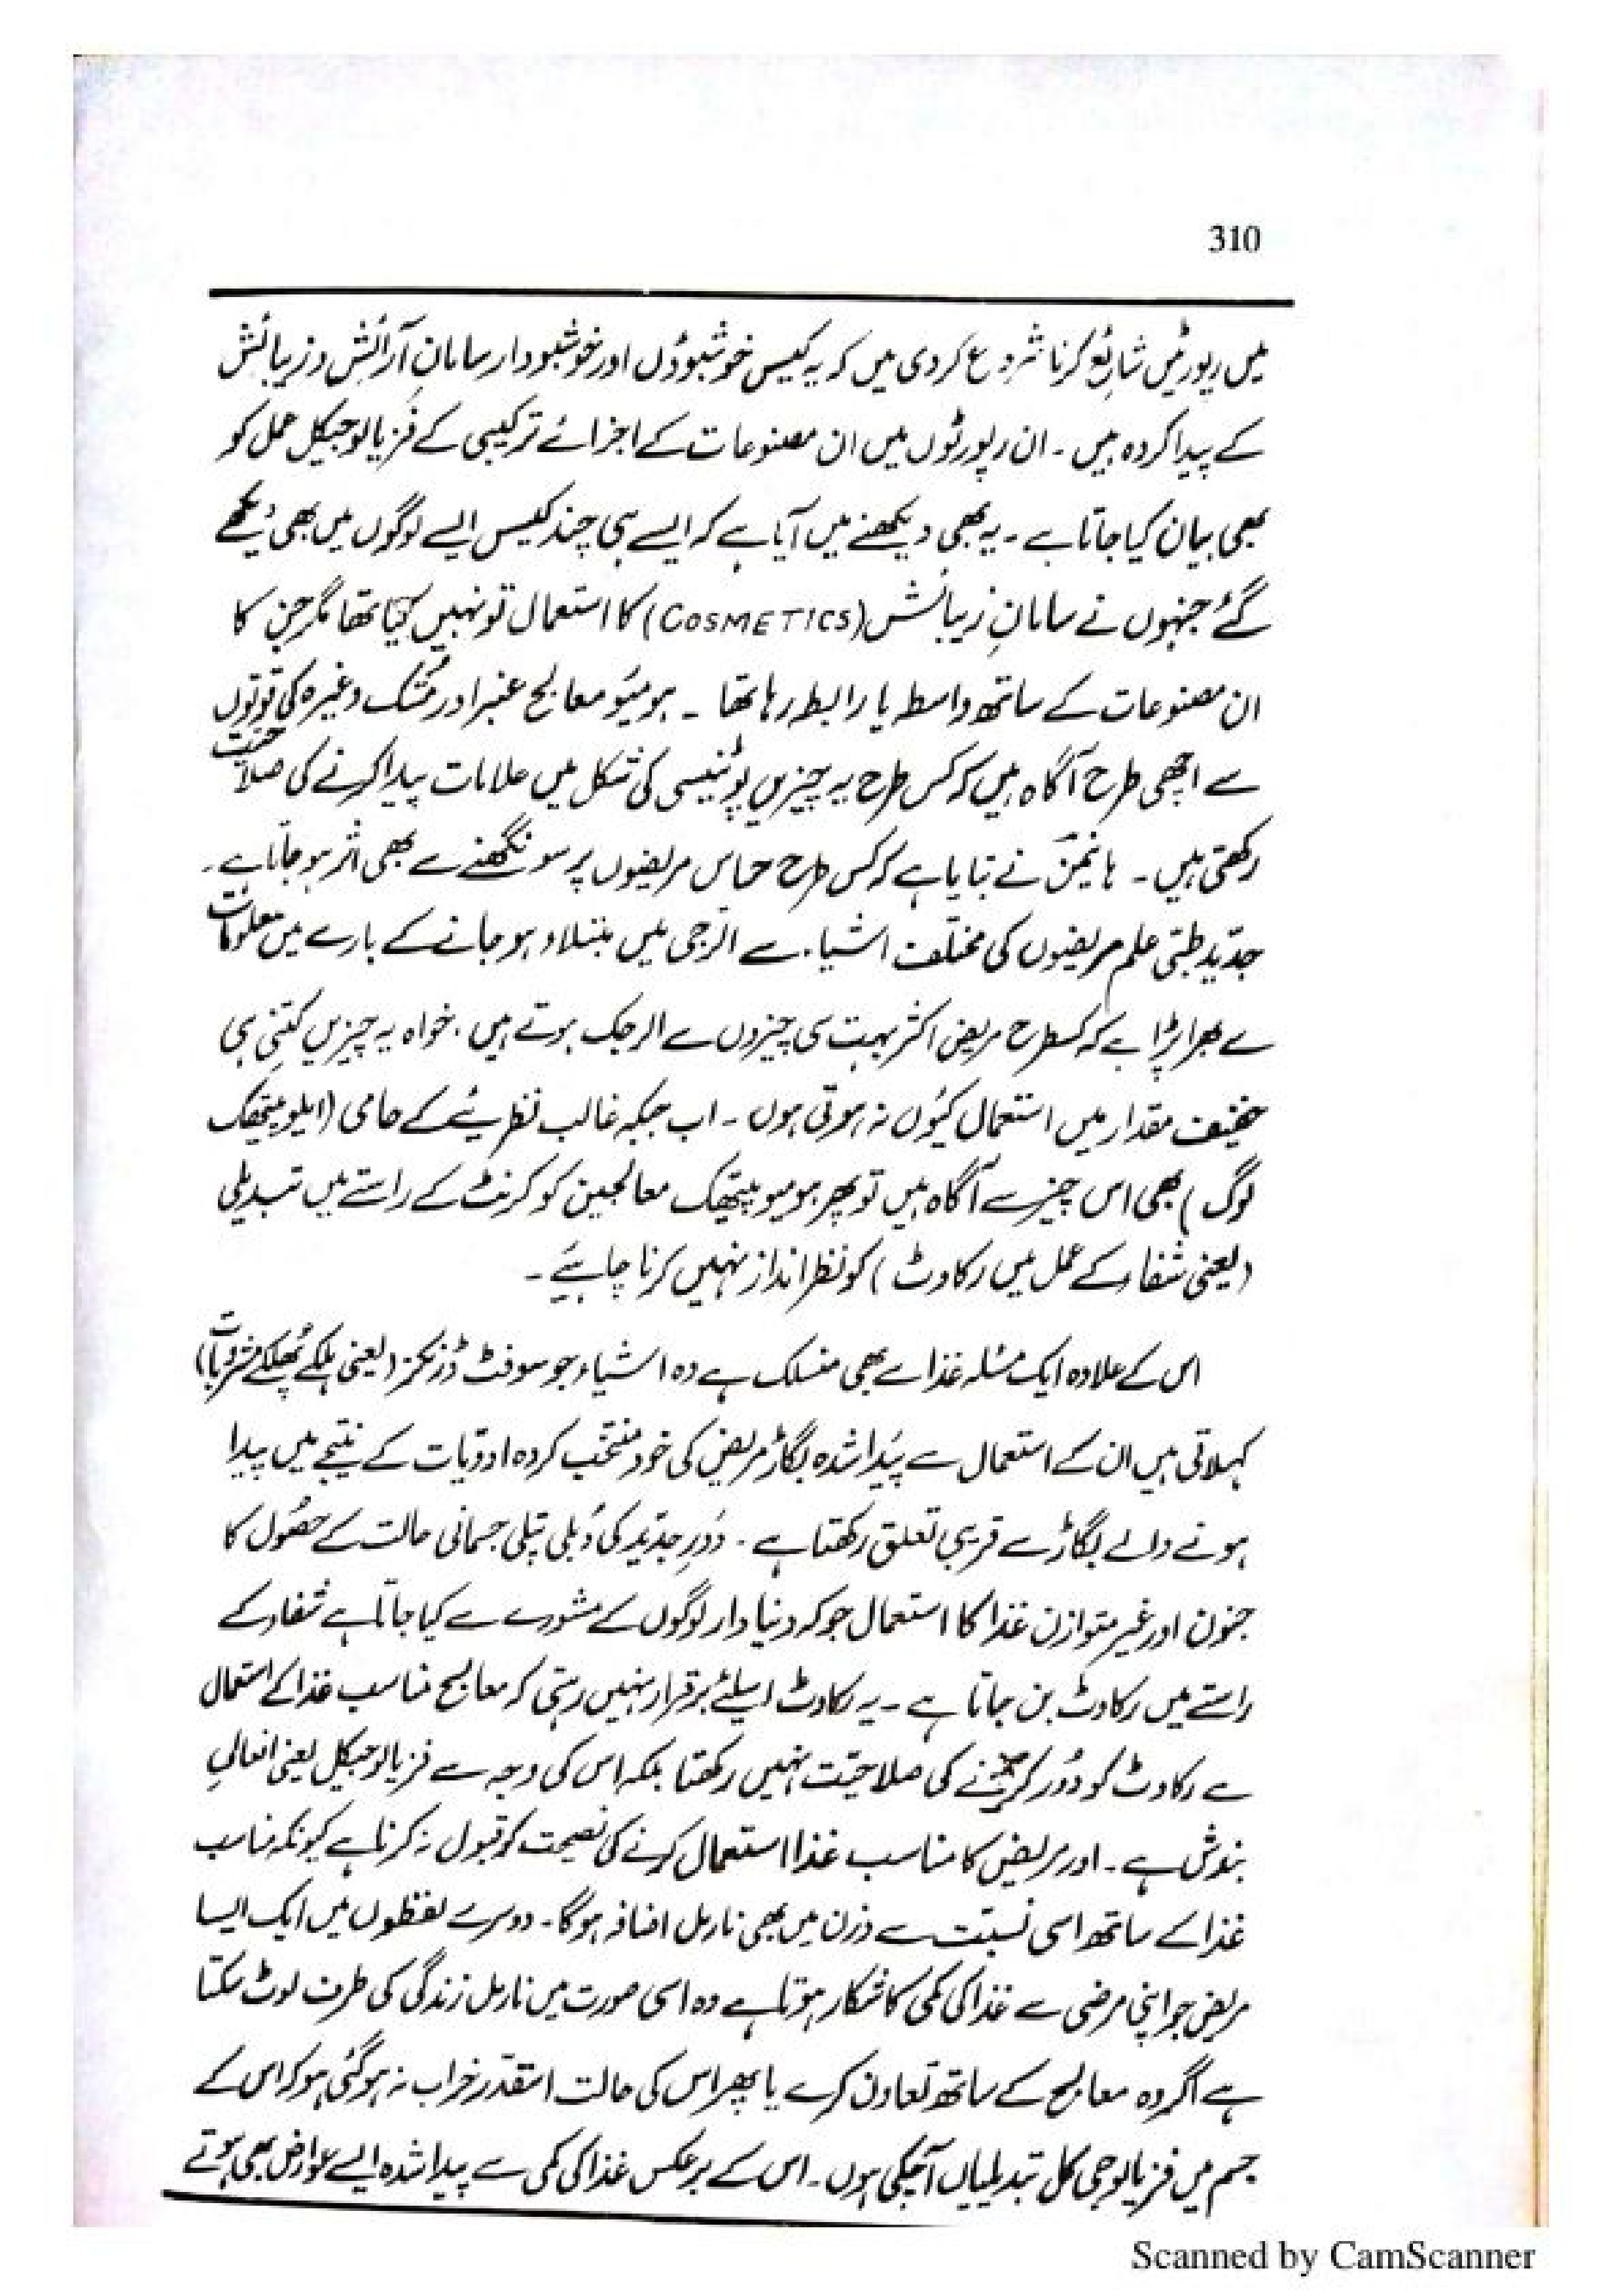 310
میں رپورٹیں شایع کرنا شروع کردی ہیں کہ یہ کیس خوشبوؤں اور خوشبودار سامانِ آرائش و زیبائش
کے پیدا کردہ ہیں ۔ ان رپورٹوں میں ان مصنوعات کے اجزائے ترکیبی کے فزیالوجیکل عمل کو
بھی بیان کیا جاتا ہے ۔ یہ بھی دیکھنے میں آیا ہے کہ ایسے ہی چند کیس ایسے لوگوں میں بھی دیکھے
گئے جنہوں نے سامانِ زیبائش (COSMETICS) کا استعمال تو نہیں کیا تھا مگر جن کا
ان مصنوعات کے ساتھ واسطہ یا رابطہ رہا تھا ۔ ہومیو معالج عنبر اور مُشک وغیرہ کی قوتوں
سے اچھی طرح آگاہ ہیں کہ کس طرح یہ چیزیں پوٹینسی کی شکل میں علامات پیدا کرنے کی صلاحیت
رکھتی ہیں ۔ ہانیمن نے بتایا ہے کہ کس طرح حساس مریضوں پر سونگھنے سے بھی اثر ہو جاتا ہے ۔
جدید طبّی علم مریضوں کی مختلف اشیاء سے الرجی میں مبتلاء ہو جانے کے بارے میں معلومات
سے بھرا پڑا ہے کہ کسطرح مریض اکثر بہت سی چیزوں سے الرجک ہوتے ہیں . خواہ یہ چیزیں کتنی ہی
خفیف مقدار میں استعمال کیوں نہ ہوتی ہوں ۔ اب جبکہ غالب نظریئے کے حامی (ایلوپیتھک
لوگ ) بھی اس چیز سے آگاہ ہیں تو پھر ہومیوپیتھک معالجین کو کرنٹ کے راستے میں تبدیلی
(یعنی شفاء کے عمل میں رکاوٹ ) کو نظر انداز نہیں کرنا چاہیئے ۔
اس کے علاوہ ایک مسئلہ غذا سے بھی منسلک ہے وہ اشیاء جو سوفٹ ڈرنکز (یعنی ہلکے پُھلکے مشروبات)
کہلاتی ہیں ان کے استعمال سے پیدا شدہ بگاڑ مریض کی خود منتخب کردہ ادویات کے نتیجے میں پیدا
ہونے والے بگاڑ سے قریبی تعلق رکھتا ہے ۔ دَورِ جدید کی دُبلی پتلی جسمانی حالت کے حصُول کا
جنون اور غیر متوازن غذا کا استعمال جو کہ دنیا دار لوگوں کے مشورے سے کیا جاتا ہے شفاء کے
راستے میں رکاوٹ بن جاتا ہے ۔ یہ رکاوٹ اسلئے برقرار نہیں رہتی کہ معالج مناسب غذا کے استعمال
سے رکاوٹ کو دُور کرنے کی صلاحیّت نہیں رکھتا بلکہ اس کی وجہ سے فزیالوجیکل یعنی افعالی
بندش ہے ۔ اور مریض کا مناسب غذا استعمال کرنے کی نصیحت کو قبول نہ کرنا ہے کیونکہ مناسب
غذا کے ساتھ اسی نسبت سے وزن میں بھی نارمل اضافہ ہوگا ۔ دوسرے لفظوں میں ایک ایسا
مریض جو اپنی مرضی سے غذا کی کمی کا شکار ہوتا ہے وہ اسی صورت میں نارمل زندگی کی طرف لوٹ سکتا
ہے اگر وہ معالج کے ساتھ تعاون کرے یا پھر اس کی حالت اسقدر خراب نہ ہوگئی ہو کہ اس کے
جسم میں فزیالوجی کل تبدیلیاں آچکی ہوں ۔ اس کے برعکس غذا کی کمی سے پیدا شدہ ایسے عوارض بھی ہوتے
Scanned by CamScanner